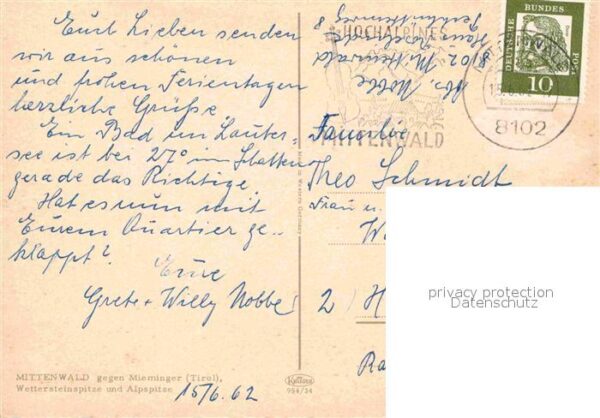 Euch Lieben senden
wir aus schönen
und frohen Ferientagen
herzliche Grüße
Ein Bad im Lauter-
see ist bei 27° im Schatten
gerade das Richtige.
Hat es nun mit
Eurem Quartier ge-
klappt?
Eure
Grete + Willy Nobbe
MITTENWALD gegen Mieminger (Tirol),
Wettersteinspitze und Alpspitze
15/6. 62
Krüger
984/34
HOCHALPINES
MITTENWALD
Abs. Nobbe
8102 Mittenwald
Haus
8
DEUTSCHE BUNDESPOST
10
MITTENWALD
8102
Familie
Theo Schmidt
Frau u.
W
2) H
Ra
privacy protection
Datenschutz